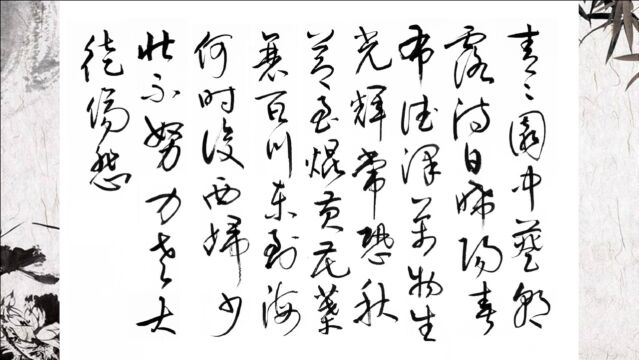 青〻園中葵朝
露待日晞陽春
布德澤萬物生
光輝常恐秋
節至焜黃花葉
衰百川東到海
何時復西歸少
壯不努力老大
徒傷悲